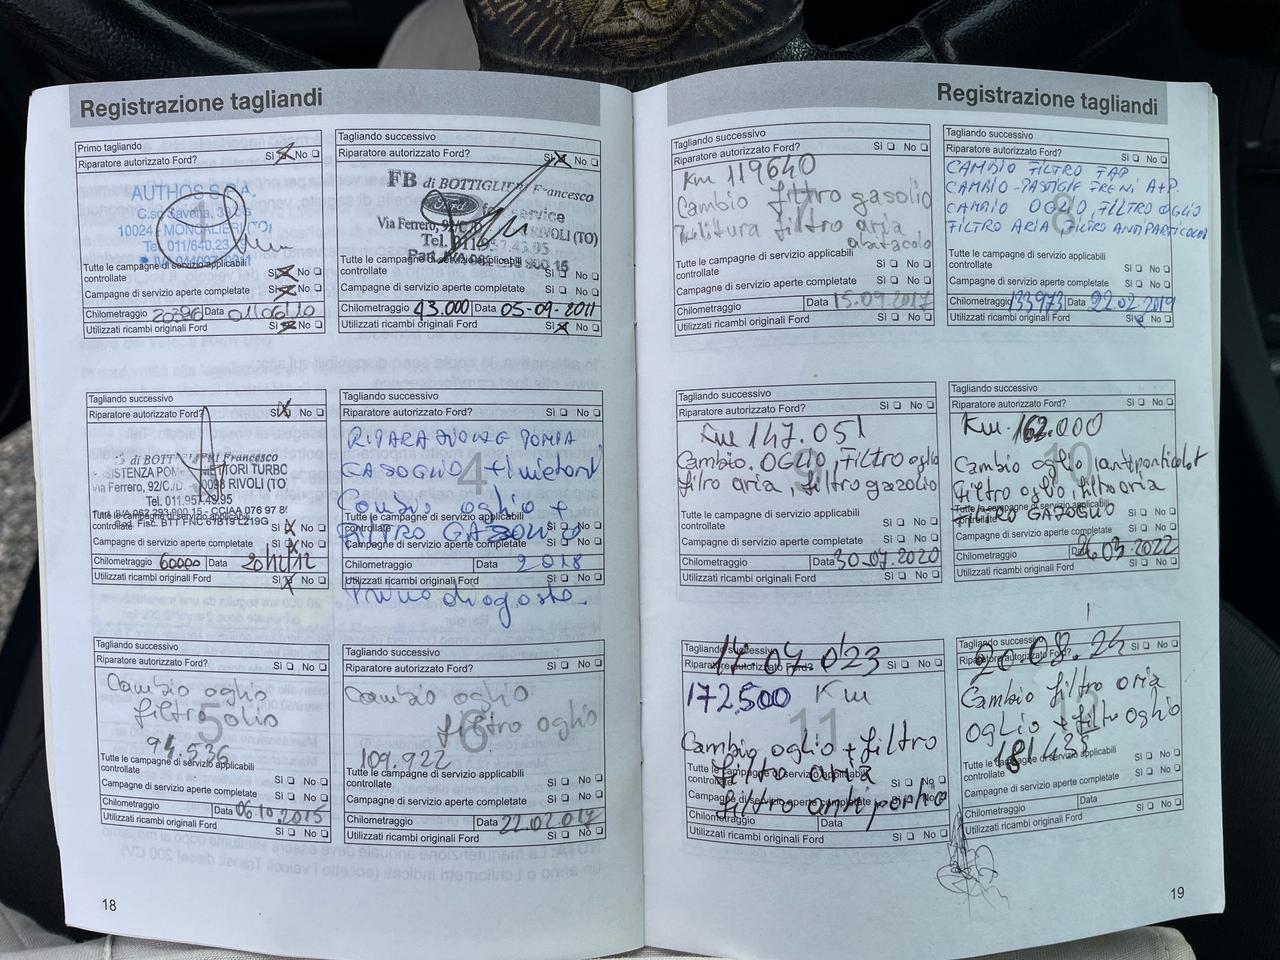 25
Registrazione tagliandi
Primo tagliando
Riparatore autorizzato Ford? Sì No
AUTHOS S.p.A.
C.so Savona, 39
10024 - MONCALIERI (TO)
Tel. 011/640.23
Tutte le campagne di servizio applicabili
controllate Sì No
Campagne di servizio aperte completate Sì No
Chilometraggio 20386 Data 01/06/10
Utilizzati ricambi originali Ford Sì No
Tagliando successivo
Riparatore autorizzato Ford? Sì No
FB di BOTTIGLIERI Francesco
Ford service
Via Ferrero, 92/C/D RIVOLI (TO)
Tel. 011.957.43.95
Tutte le campagne di servizio applicabili
controllate Sì No
Campagne di servizio aperte completate Sì No
Chilometraggio 43.000 Data 05-09-2011
Utilizzati ricambi originali Ford Sì No
Tagliando successivo
Riparatore autorizzato Ford? Sì No
di BOTTIGLIERI Francesco
Via Ferrero, 92/C/D 10098 RIVOLI (TO
Tel. 011.957.43.95
Tutte le campagne di servizio applicabili
controllate Sì No
Campagne di servizio aperte completate Sì No
Chilometraggio 60000 Data 20/11/12
Utilizzati ricambi originali Ford Sì No
Tagliando successivo
Riparatore autorizzato Ford? Sì No
4
RIPARAZIONE POMPA
GASOGLIO + iniettori
Cambio oglio +
Tutte le campagne di servizio applicabili
controllate Sì No
FILTRO GASOLIO
Campagne di servizio aperte completate Sì No
Chilometraggio Data 2018
Utilizzati ricambi originali Ford Sì No
Primo di agosto
Tagliando successivo
Riparatore autorizzato Ford? Sì No
Cambio oglio
5
filtro olio
94.536
Tutte le campagne di servizio applicabili
controllate Sì No
Campagne di servizio aperte completate Sì No
Chilometraggio Data 06.10.2015
Utilizzati ricambi originali Ford Sì No
Tagliando successivo
Riparatore autorizzato Ford? Sì No
Cambio oglio
6
filtro oglio
109.922
Tutte le campagne di servizio applicabili
controllate Sì No
Campagne di servizio aperte completate Sì No
Chilometraggio Data 22.02.2017
Utilizzati ricambi originali Ford Sì No
18
Registrazione tagliandi
Tagliando successivo
Riparatore autorizzato Ford? Sì No
Km 119640
Cambio filtro gasolio
Pulitura filtro aria
abitacolo
Tutte le campagne di servizio applicabili
controllate Sì No
Campagne di servizio aperte completate Sì No
Chilometraggio Data 15.09.2017
Utilizzati ricambi originali Ford Sì No
Tagliando successivo
Riparatore autorizzato Ford? Sì No
CAMBIO FILTRO FAP
CAMBIO PASTGIE FRENI A+P.
8
CAMBIO OGLIO, FILTRO OGLIO
FILTRO ARIA FILTRO ANTIPARTICOLA
Tutte le campagne di servizio applicabili
controllate Sì No
Campagne di servizio aperte completate Sì No
Chilometraggio 133973 Data 22.02.2019
Utilizzati ricambi originali Ford Sì No
Tagliando successivo
Riparatore autorizzato Ford? Sì No
Km 147.051
Cambio. OGLIO, Filtro oglio
filro aria, filtro gazolio
Tutte le campagne di servizio applicabili
controllate Sì No
Campagne di servizio aperte completate Sì No
Chilometraggio Data 30.07.2020
Utilizzati ricambi originali Ford Sì No
Tagliando successivo
Riparatore autorizzato Ford? Sì No
Km. 162.000
10
Cambio oglio, antiparticolat
Filtro oglio, filtro aria
Tutte le campagne di servizio applicabili
controllate Sì No
FILTRO GASOGLIO
Campagne di servizio aperte completate Sì No
Chilometraggio Data 26.03.2022
Utilizzati ricambi originali Ford Sì No
Tagliando successivo
Riparatore autorizzato Ford? Sì No
17.07.023
172.500 Km
11
Cambio oglio + filtro
Tutte le campagne di servizio applicabili
controllate Sì No
filtro aria
Campagne di servizio aperte completate Sì No
filtro antipartico
Chilometraggio Data
Utilizzati ricambi originali Ford Sì No
Tagliando successivo
Riparatore autorizzato Ford? Sì No
Cambio filtro aria
oglio + filtro oglio
Tutte le campagne di servizio applicabili
controllate Sì No
Campagne di servizio aperte completate Sì No
Chilometraggio Data
Utilizzati ricambi originali Ford Sì No
19